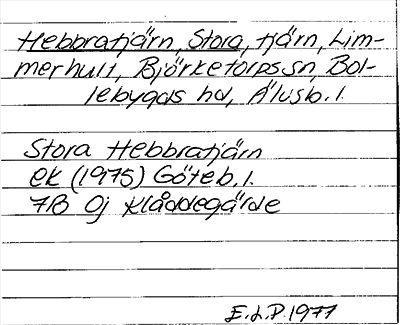 Hebbratjärn, Stora, tjärn, Lim-
merhult, Björketorps sn, Bol-
lebygds hd, Älvsb. l.
Stora Hebbratjärn
ek (1975) Göteb. l.
7B 0j Klåddegärde
E.L.P. 1977